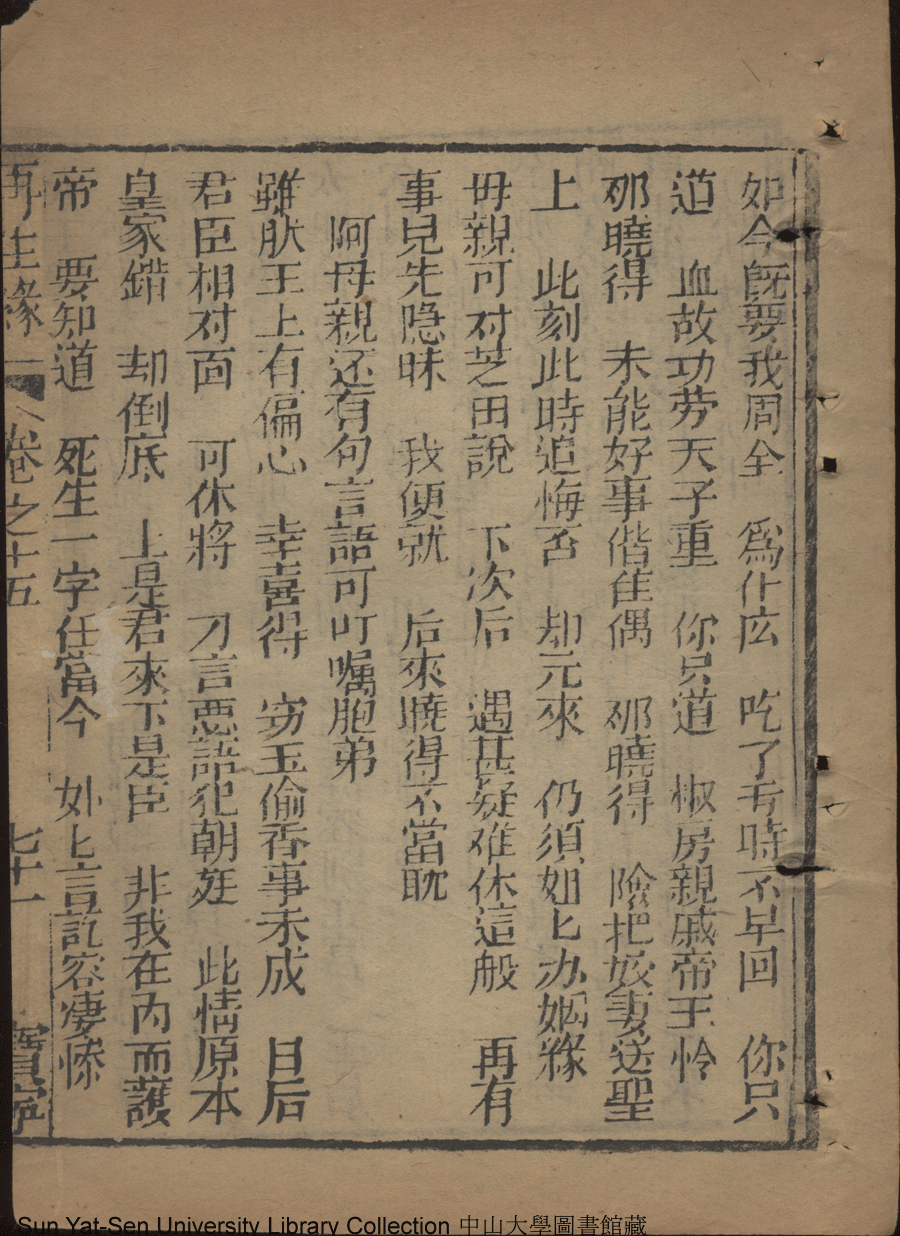 如今既要我周全　爲什庅　吃了丢時不早回　你只
道　血故功劳天子重　你只道　椒房親戚帝王怜
那曉得　未能好事偕佳偶　那曉得　險把姣妻送聖
上　此刻此時追悔否　却元來　仍须如匕办姻緣
毋親可对芝田說　下次后　遇甚疑难休這般　再有
事兒先隐昧　我便就　后來曉得不當耽
阿母親还有句言語可叮嘱胞弟
雖肰王上有偏心　幸喜得　窃玉偷香事未成　日后
君臣相对面　可休將　刁言悪語犯朝廷　此情原本
皇家錯　却倒底　上是君來下是臣　非我在内而護
帝　要知道　死生一字任當今　妯匕言訖容凄慘
再生緣　卷之十五　七十一　寳寧
Sun Yat-Sen University Library Collection 中山大學圖書館藏